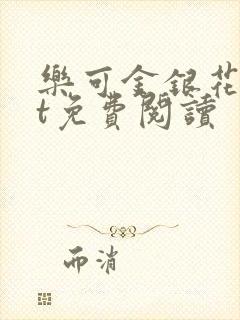 樂可金銀花
t免費閱讀
而消